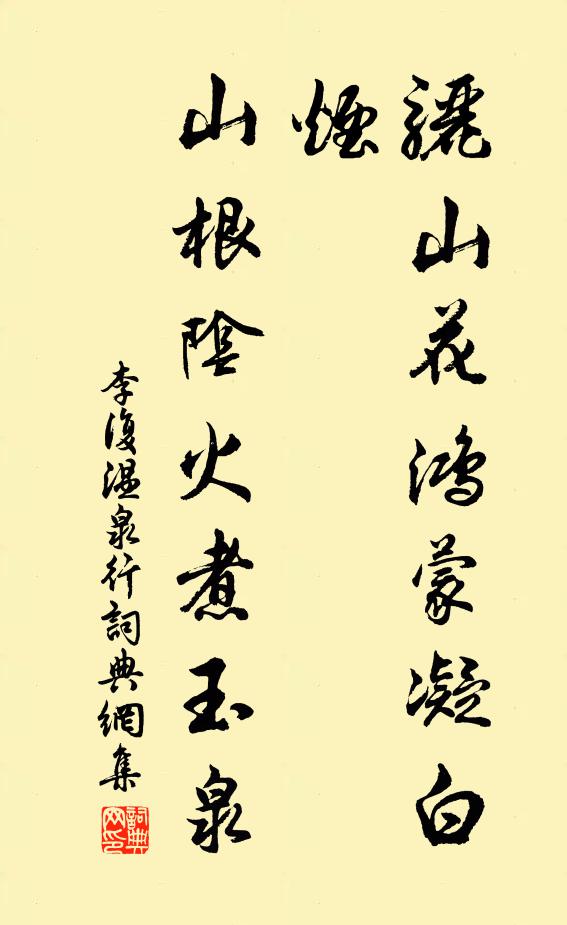 驪山花鴻蒙凝白
煙
山根陰火煮玉泉
李復溫泉行詞典網集
詞典網印